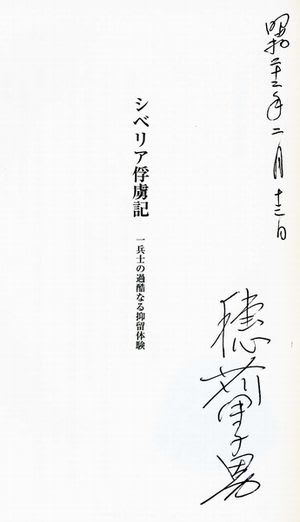 昭和 年二月 日
穂苅甲子男
シベリア俘虜記
一兵士の過酷なる抑留体験